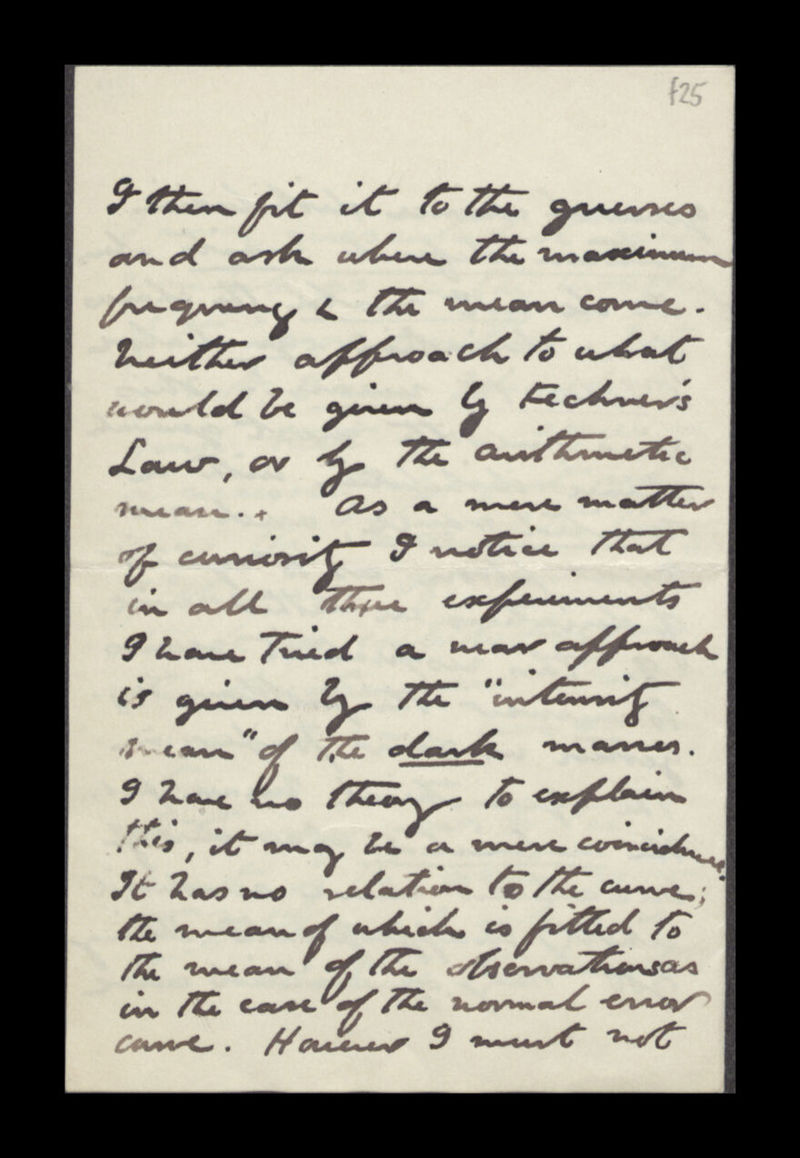 f25
I then fit it to the guesses
and ask where the maximum
frequency & the mean come.
Neither approach to what
would be given by Fechner's
Law, or by the arithmetic
mean. As a mere matter
of curiosity I notice that
in all three experiments
I have tried a near approach
is given by the "intensity
mean" of the dark masses.
I have no theory to explain
this, it may be a mere coincidence.
It has no relation to the curve;
the mean of which is fitted to
the mean of the observations as
in the case of the normal error
curve. However I must not